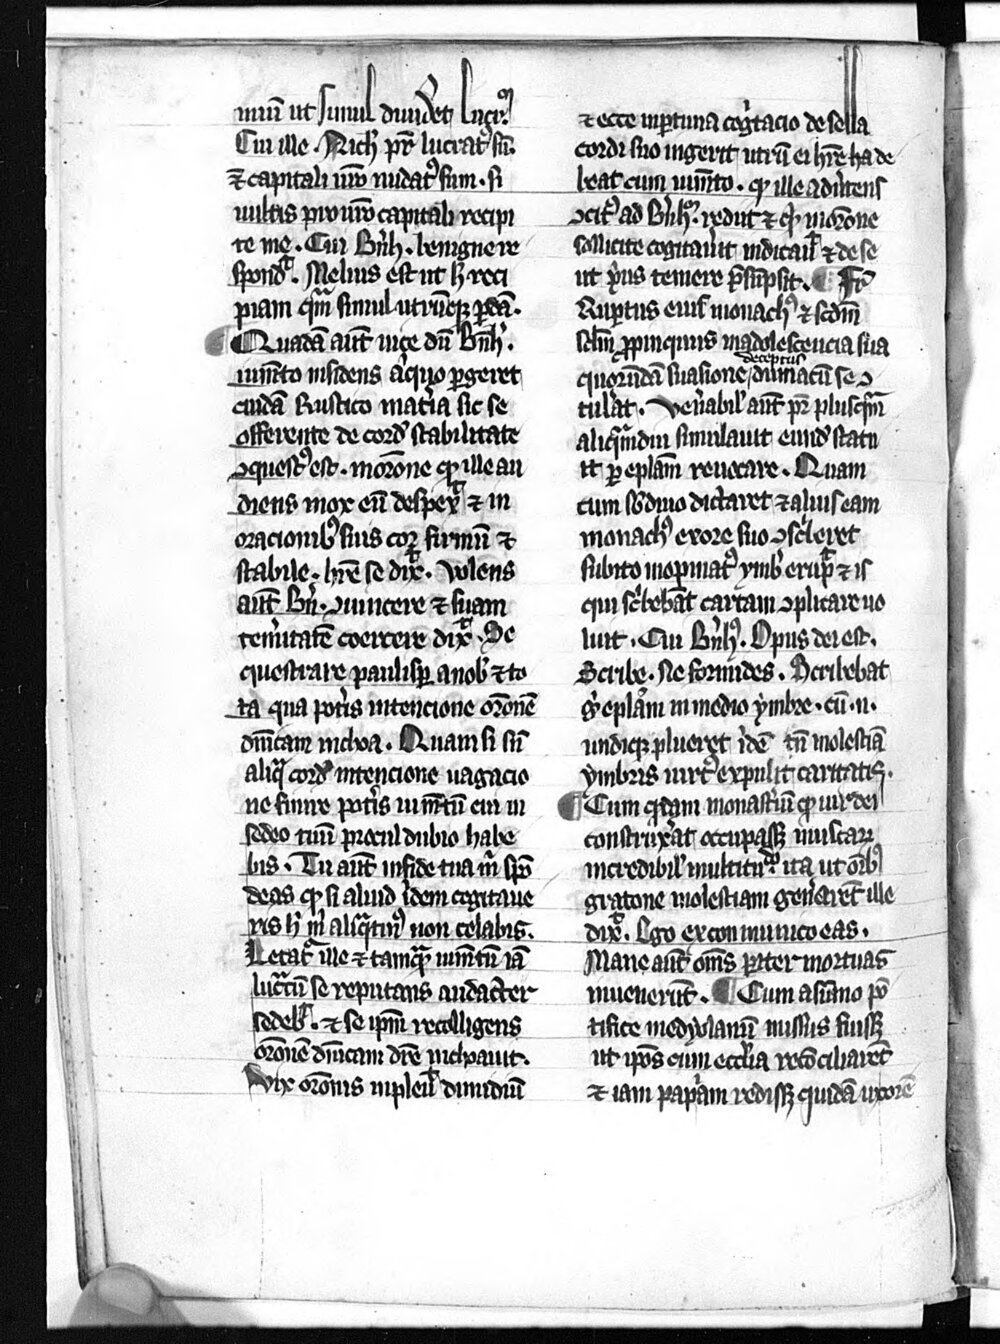 mun ut simul diuidet̉ lucrū.
Cui ille. Nich̉ pr̄ lucrat̉ sū.
⁊ capitali uo̅ nudat⁹ sum. si
uultis pro uro̅ capitali recipi
te me. Cui Bn̄h̉. benigne re
spond̉. Melius est ut h̉ reci
piam qm̄ simul utrūq; ꝑdā.
Quadā aut̄ uice dū Bn̄h̉.
ium̄to insidens aliquo ꝑgeret
cuidā Rustico materia sic se
offerente de cord̉ stabilitate
ꝯquest⁹ est. moro̅ne ꝙ ille au
diens mox eū despex̉ ⁊ in
oracionib⁹ suis cor firmū ⁊
stabile. hr̄e se dix̉. Volens
aut̄ Bn̄. ꝯuincere ⁊ suam
tem̉itatē coercere dix̉. Se
questrare paulisꝑ a nob̉ ⁊ to
ta qua pot̉is intencione oro̅nē
dn̄icam inchoa. Quam si sn̄
aliq̉ cord̉ intencione uagacio
ne finire pot̉is ium̄tū cui in
sedeo tuū procul dubio habe
bis. Tu aut̄ in fide tua m̉ spō
deas ꝙ si aliud ibidem cogitaue
ris h̉ m̉ aliq̉tin⁹ non celabis.
Letat⁹ ille ⁊ tamq̉ ium̄tū iā
luc̉tū se reputans audacter
sedeb̉. ⁊ se ipm̄ recolligens
oro̅nē dn̄icam dic̄e inchoauit.
Vix oro̅nis inpleủ dimidiū
⁊ ecce inportuna cog̉tacio de sella
cordi suo ingerit utrū ei hr̄e ha de
beat cum ium̄to. ꝙ ille aduertens
ꝯcit⁹ ad Bn̄h̉. rediit ⁊ qd̉ in oro̅ne
sollicite cogitaủit indicaủ ⁊ de se
ut p̉us temere p̄sūpsit. Fr̄
Rupertus eius monach⁹ ⁊ scdm̄
sclm̄ ꝓpinquus in adolescencia sua
quorundā suasione deceptus cluniacū se ꝯ
tulat̉. Venerabil̉ aut̄ pr̄ plusq̉m
aliq̉mdiu simulauit eund̉ statu
it ꝑ eplām reuocare. Quam
cum sb̉ diuo dictaret ⁊ alius eam
monach⁹ ex ore suo ꝯsc̉beret
subito inopinat⁹ ymb̉ erup̉ ⁊ is
qui sc̉bebat cartam ꝯplicare uo
luit. Cui Bn̄h̉. Opus dei est.
Scribe. Ne formides. Scribebat
g̉ eplām in medio ymbre. cū. n.
undiq; plueret ibidē tn̄ molestiā
ymbris uirt⁹ expulit caritatis.
Cum qddam monast̉iū ꝙ uir dei
construxerat occupass; muscarū
incredibil̉ multitudo. ita ut om̄ib⁹
grauem molestiam gen̉aret ille
dix̉. Ego exconmunico eas.
Mane aut̄ om̄s pariter mortuas
inuenerūt. Cum a sūmo pō
tifice mediolanum missus fuiss;
ut ipo̅s cum eccl̉ia reconciliaret
⁊ iam papiam rediss; quidā uxorē